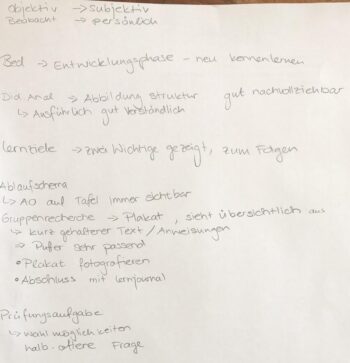 Objektiv → subjektiv
Beobacht → persönlich
Bed → Entwicklungsphase - neu kennenlernen
Did Anal → Abbildung Struktur gut nachvollziehbar
↳ Ausführlich gut verständlich
Lernziele → zwei Wichtige gezeigt, zum Folgen
Ablaufschema
↳ AO auf Tafel immer sichtbar
Gruppenrecherche → Plakat, sieht übersichtlich aus
↳ kurz gehaltener Text / Anweisungen
⇒ Puffer sehr passend
• Plakat fotografieren
• Abschluss mit Lernjournal
Prüfungsaufgabe
↳ Wahlmöglichkeiten
halb-offene Frage